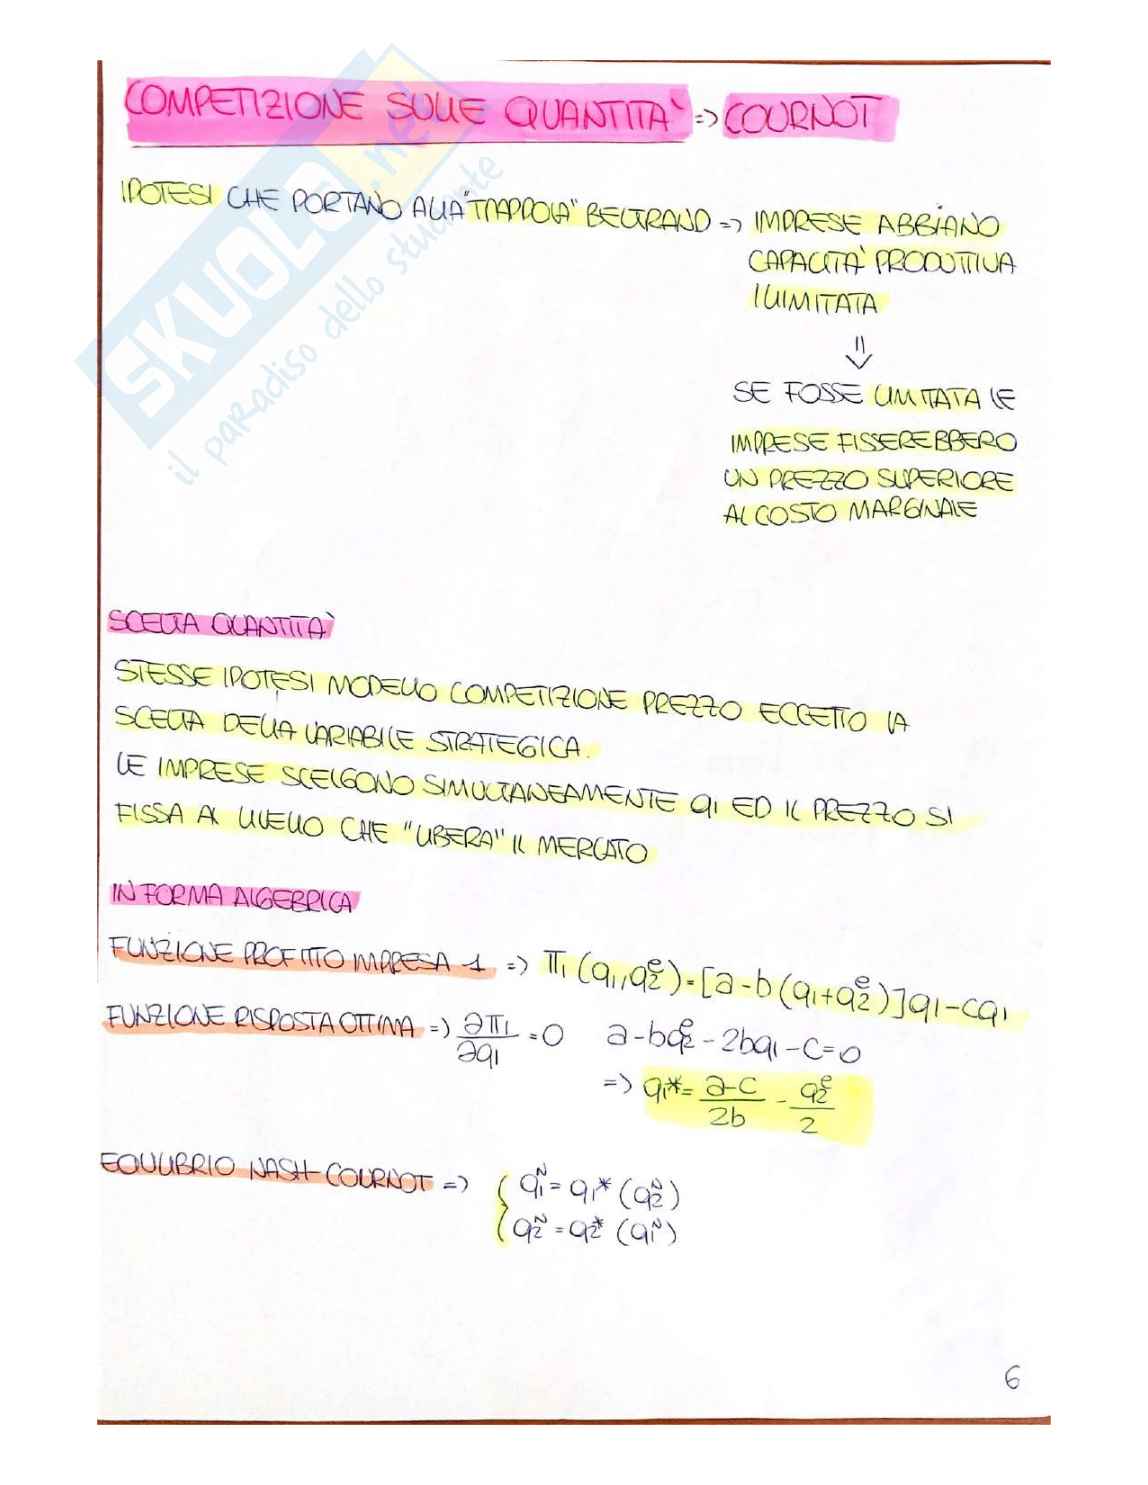 COMPETIZIONE SULLE QUANTITA' => COURNOT
IPOTESI CHE PORTANO ALLA "TRAPPOLA" BELTRAND => IMPRESE ABBIANO
CAPACITA' PRODUTTIVA
ILLIMITATA
SE FOSSE LIMITATA LE
IMPRESE FISSEREBBERO
UN PREZZO SUPERIORE
AL COSTO MARGINALE
SCELTA QUANTITA'
STESSE IPOTESI MODELLO COMPETIZIONE PREZZO ECCETTO LA
SCELTA DELLA VARIABILE STRATEGICA.
LE IMPRESE SCELGONO SIMULTANEAMENTE qi ED IL PREZZO SI
FISSA AL LIVELLO CHE "LIBERA" IL MERCATO
IN FORMA ALGEBRICA
FUNZIONE PROFITTO IMPRESA 1 => π₁(q₁,q₂ᵉ)=[a-b(q₁+q₂ᵉ)]q₁-cq₁
FUNZIONE RISPOSTA OTTIMA => ∂π₁/∂q₁=0 a-bq₂ᵉ-2bq₁-c=0
=> q₁*= a-c/2b - q₂ᵉ/2
EQUILIBRIO NASH-COURNOT => { q₁ᴺ=q₁*(q₂ᴺ)
q₂ᴺ=q₂*(q₁ᴺ)
6
SKUOLA.net
il paradiso dello studente